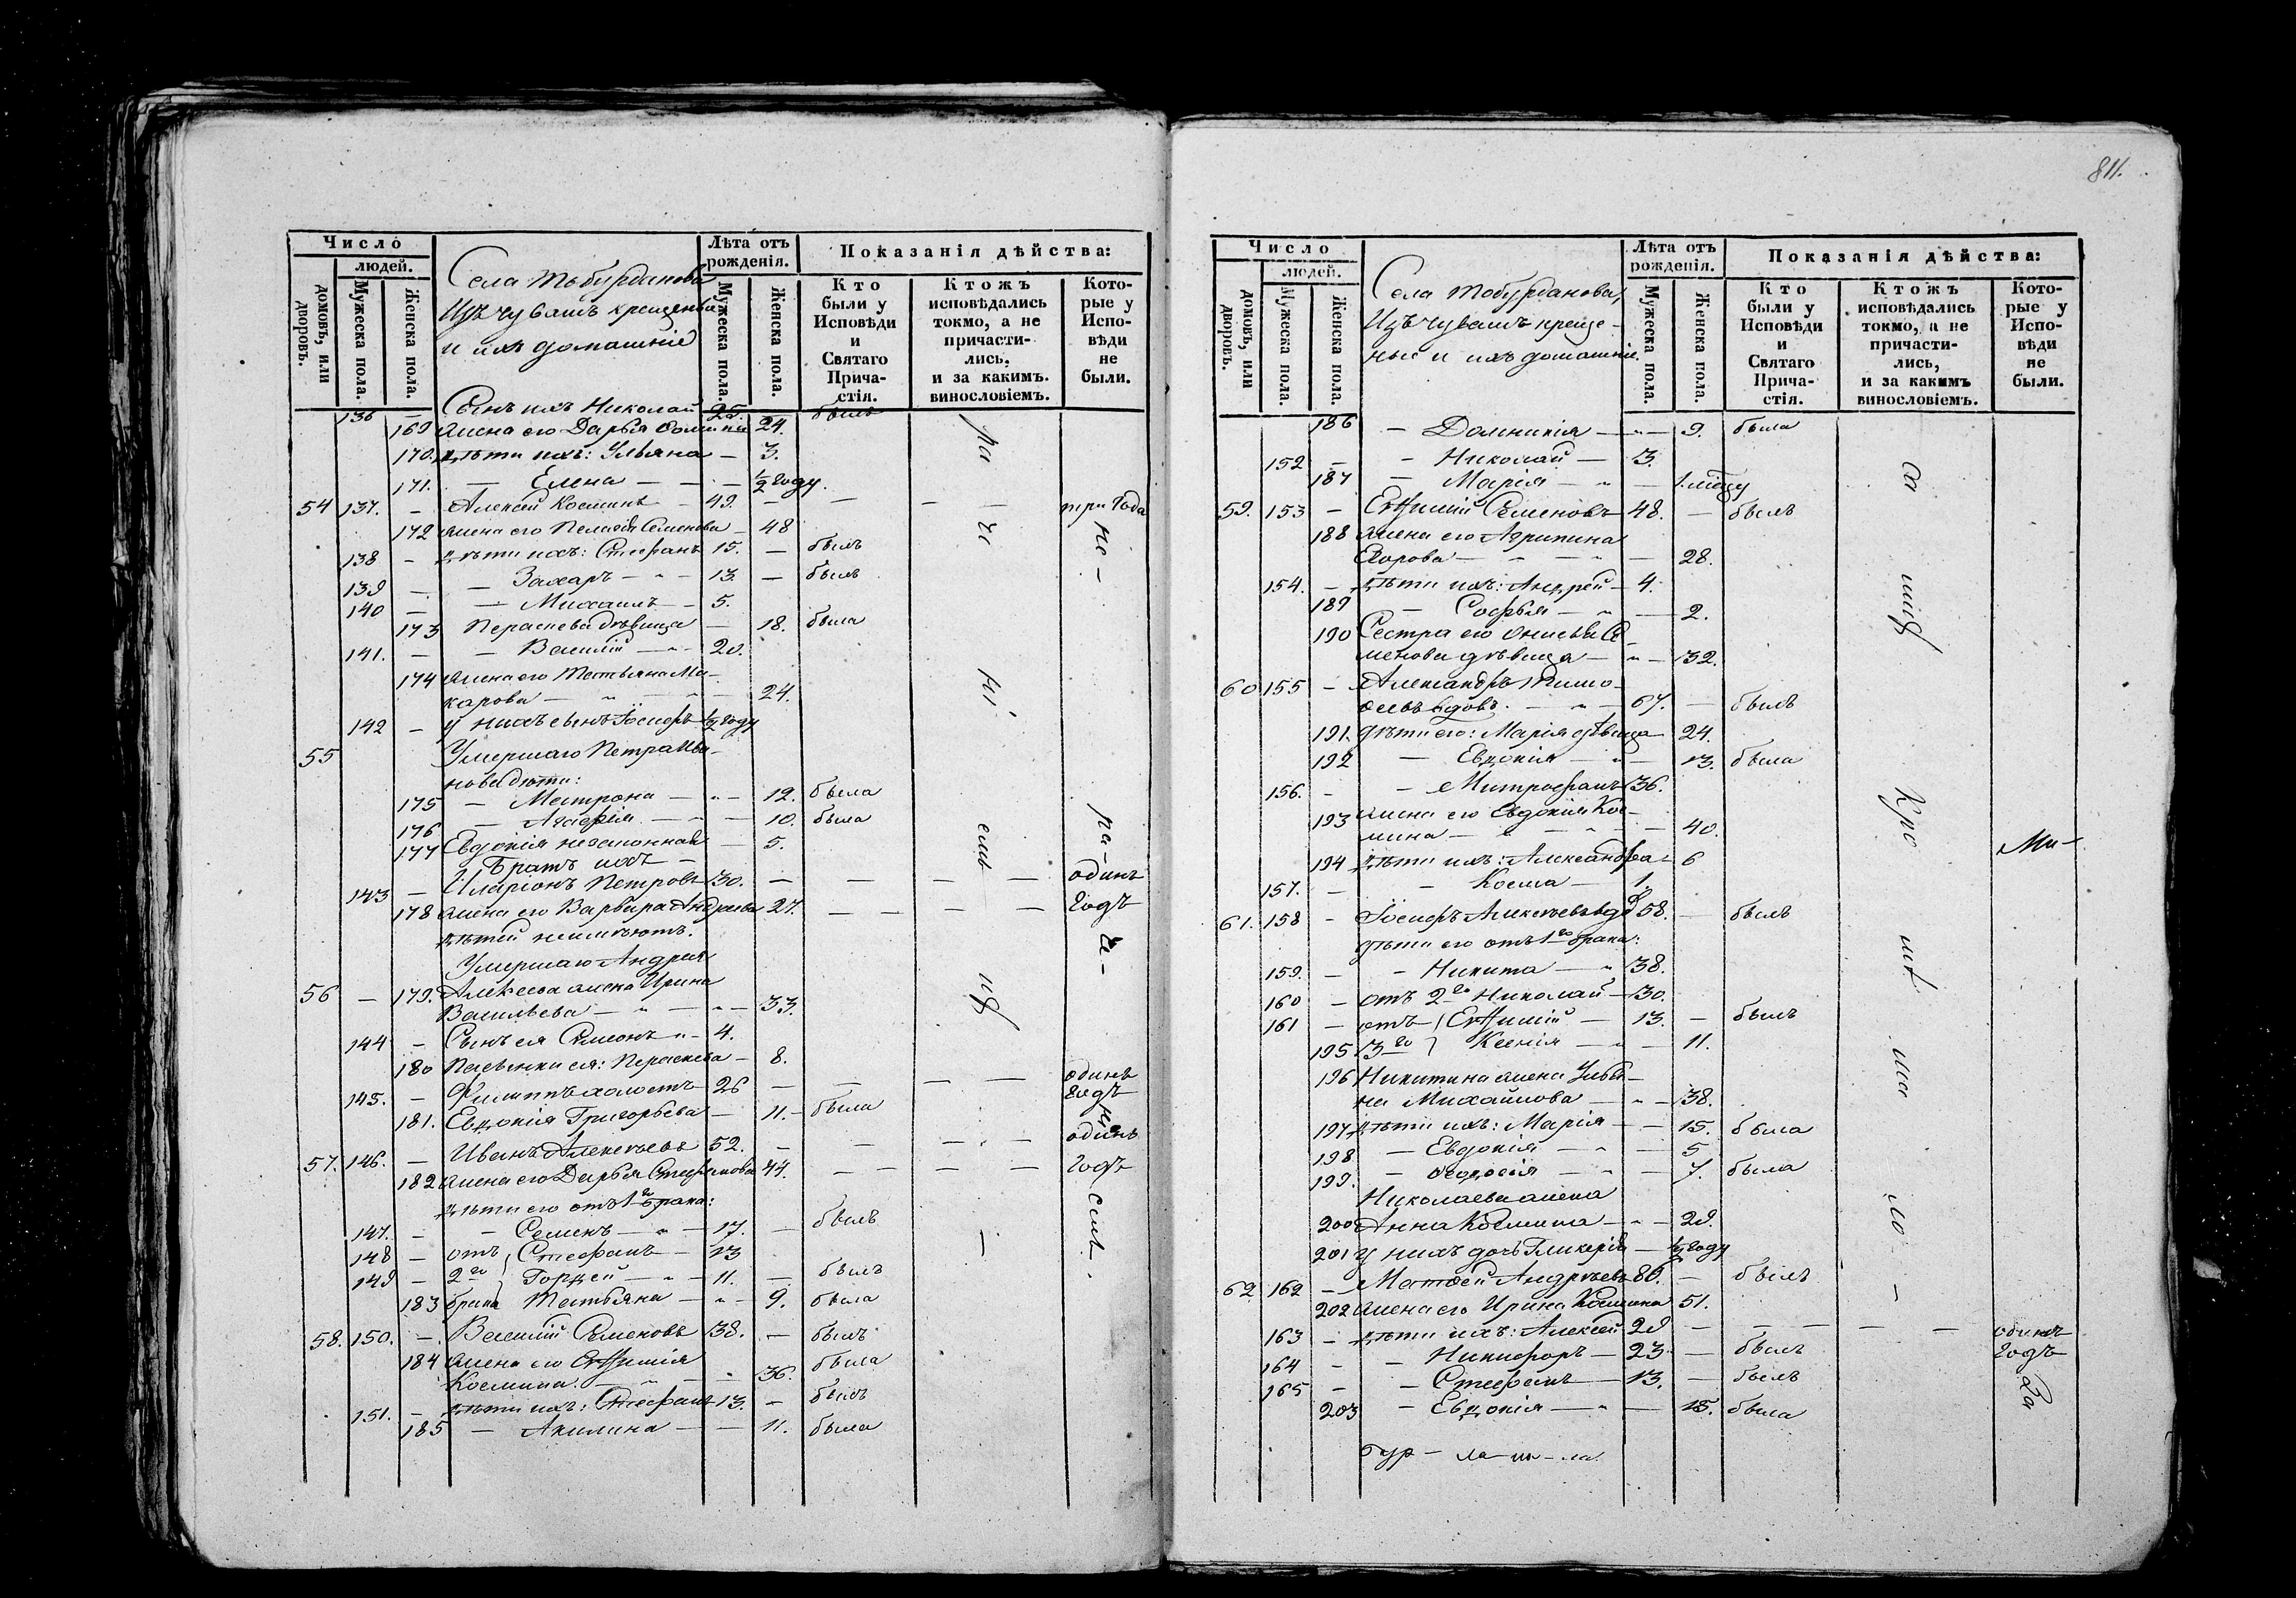 Число
людей.
домовъ, или дворовъ.
Мужеска пола.
Женска пола.
Села Тобурданова
Изъ чувашъ крещеные
и ихъ домашніе
Лѣта отъ рожденія.
Мужеска пола.
Женска пола.
Показанія дѣйства:
Кто были у Исповѣди и Святаго Прича-стія.
Ктожъ исповѣдались токмо, а не причасти-лись, и за какимъ. винословіемъ.
Кото-рые у Испо-вѣди не были.
136 — Сынъ ихъ Николай 25. былъ
169 жена его Дарья 24.
170. дѣти ихъ: Ульяна — 3.
171. — Елена — — 1/2 году.
54 137. — Алексей Косминъ — 49. — — — три года
172 жена его Пелагея Семенова — 48
138 — дѣти ихъ: Стефанъ 15. — былъ
139 — — Захаръ — " — 13. — былъ
140 — — Михаилъ — 5.
173 Параскева дѣвица — 18. была
141. — — Василій — " — 20.
174 жена его Татьяна Ма-
карова — " — " — 24.
142 — у нихъ сынъ Іосифъ 1/2 году
55 Умершаго Петра Ива-
нова дѣти:
175 — Матрона — " — 12. была
176 — Агафія — " — 10. была
177 Евдокія — 5.
Братъ ихъ —
143 — Иларіонъ Петровъ 30. — — — — одинъ
178 жена его Варвара Андреева 27. — — — — годъ
дѣтей неимѣютъ.
Умершаго Андрея
56 — 179. Алексева жена Ирина
Васильева — " — " — 33.
144 — Сынъ ея Симеонъ " — 4.
180 Пасынки ея: Параскева — 8.
145. — Филиппъ холостъ 26 — — — — одинъ годъ
181. Евдокія Григорьева — 11. — была
57. 146. — Иванъ Алексѣевъ 52. — — — — одинъ
182 жена его Дарья Стефанова 44. — — — — годъ
дѣти его отъ 1го брака:
147. — — Семенъ — " — 17. — былъ
148 — отъ Стефанъ — 13
149 — 2го Гордей — " — 11. — былъ
183 брака Татьяна — " — 9. была
58. 150. — Василій Семеновъ 38. — былъ
184 жена его Евфимія
Космина. — " — 36. была
151. — дѣти ихъ: Стефанъ 13. — былъ
185 — Акилина — — 11. была
811.
Число
людей.
домовъ, или дворовъ.
Мужеска пола.
Женска пола.
Села Тобурданова,
Изъ чувашъ креще-
ные и ихъ домашніе.
Лѣта отъ рожденія.
Мужеска пола.
Женска пола.
Показанія дѣйства:
Кто были у Исповѣди и Святаго Прича-стія.
Ктожъ исповѣдались токмо, а не причасти-лись, и за какимъ винословіемъ.
Кото-рые у Испо-вѣди не были.
186 — Домникія — " — 9. была
152 — — Николай — 3.
187 — Марія — " — 1.
59. 153 — Евфимій Семеновъ 48. — былъ
188 жена его Агрипина
Егорова — — " — 28.
154. — дѣти ихъ: Андрей — 4.
189 — Софья — " — 2.
190 Сестра его Се-
менова дѣвица — " — 32.
60 155 — Александръ Тимо-
феевъ вдовъ. — " — 67. — былъ
191. дѣти его: Марія дѣвица 24.
192 — Евдокія — " — 13. была
156. — — Митрофанъ 36.
193 жена его Евдокія Кос-
мина — " — " — 40.
194 дѣти ихъ: Александра — 6
157. — — Косма — 1.
61. 158 — Іосифъ Алексѣевъ вдовъ 58. — былъ
дѣти его отъ 1го брака:
159. — — Никита — " 38.
160 — отъ 2го Николай — 30.
161 — отъ Евфимій — 13. — былъ
195 3го Ксенія — " — 11.
196 Никитина жена Улья-
на Михайлова — " — 38.
197 дѣти ихъ: Марія — — 15. была
198 — Евдокія — " — 5
199. — Феодосія — " — 7. была
Николаева жена
200 Анна Космина — " — 29.
201 у нихъ дочь Гликерія — 1/2 году
62 162 — Матфей Андреевъ 80. — былъ
202 жена его Ирина Космина 51.
163 — дѣти ихъ: Алексей 29 — — — — одинъ
164 — — Никифоръ — 23. — былъ годъ
165 — — Стефанъ — 13. — былъ
203 — Евдокія — " — 15. была